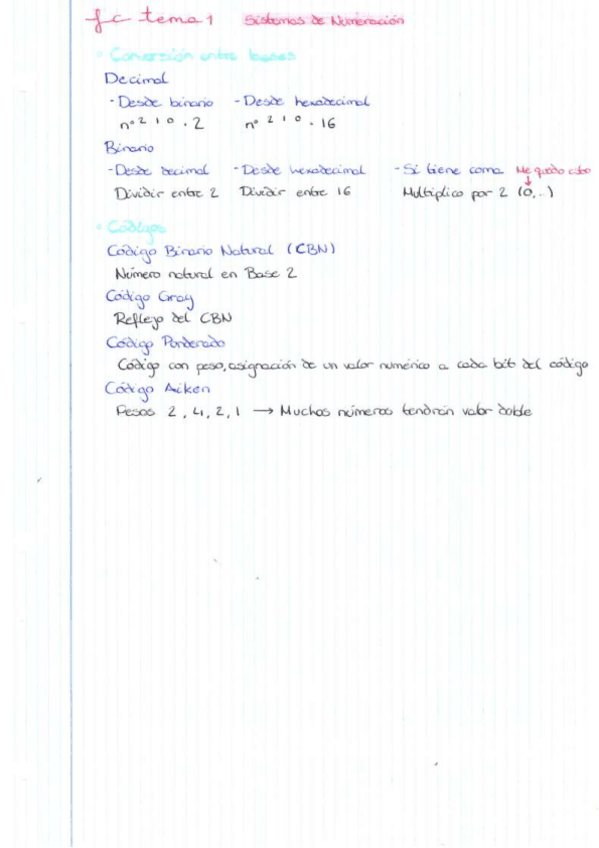 fc tema 1 Sistemas de Numeración
• Conversión entre bases
Decimal
- Desde binario - Desde hexadecimal
nº 2 1 0 . 2 nº 2 1 0 . 16
Binario
- Desde decimal - Desde hexadecimal - Si tiene coma Me quedo esto
Dividir entre 2 Dividir entre 16 Multiplico por 2 (0,..)
• Códigos
Código Binario Natural (CBN)
Número natural en Base 2
Código Gray
Reflejo del CBN
Código Ponderado
Código con peso, asignación de un valor numérico a cada bit del código
Código Aiken
Pesos 2, 4, 2, 1 → Muchos números tendrán valor doble